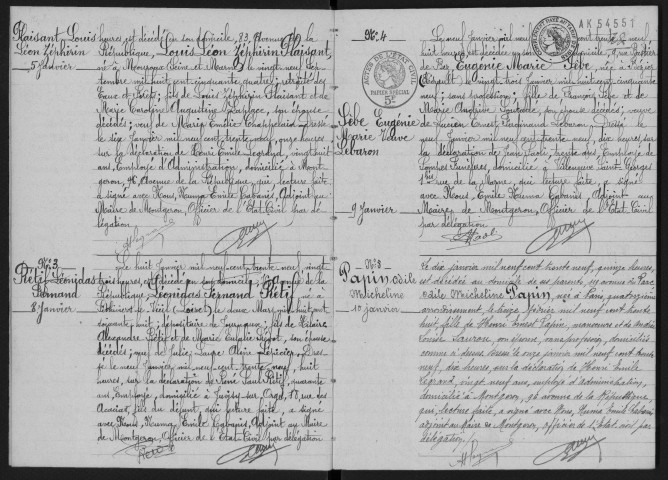 Plaisant Louis
Léon Zéphirin
5 janvier
heures est décédé en son domicile, 83, Avenue de la
République, Louis Léon Zéphirin Plaisant,
né à Mouroux (Seine et Marne) le vingt neuf sep
tembre mil huit cent cinquante quatre; retraité des
Eaux et Forêts; fils de Louis Zéphirin Plaisant et
de Marie Caroline Augustine, son épouse
décédés; veuf de Marie Emélie Chappelard. Dressé
le six Janvier mil neuf cent trente neuf, onze heures
sur la déclaration de Henri Emile Legrand, vingt huit
ans, Employé d'Administration, domicilié à Mont
geron, 96, Avenue de la République, qui lecture faite
a signé avec Nous, Numa Emile Cabanis, Adjoint au
Maire de Montgeron, Officier de l'Etat Civil par dé
légation
N° 3
Rétif Léonidas
Fernand
8 janvier
Le huit Janvier mil neuf cent trente neuf, vingt
trois heures, est décédé en son domicile, de la
République Léonidas Fernand Rétif, né à
Pithiviers le Vieil (Loiret) le douze Mars mil huit cent
soixante huit; dépositaire de journaux; fils de Hilaire
Alexandre Rétif et de Marie Eulalie, son épouse
décédés; époux de Julie Laure
Dres
sé le neuf Janvier mil neuf cent trente neuf, huit
heures, sur la déclaration de René Paul Rétif, quarante
ans, Employé, domicilié à Juvisy sur Orge, rue des
Acacias, fils du défunt, qui lecture faite, a signé
avec Nous Numa, Emile Cabanis, Adjoint au Maire
de Montgeron, Officier de l'Etat Civil par délégation
N° 4
Sèbe Eugénie
Marie Veuve
Lebaron
9 janvier
ACTES DE L'ÉTAT CIVIL
PAPIER SPÉCIAL
AK 54551
Le neuf Janvier mil neuf cent trente neuf
huit heures est décédée en son domicile, 9 rue
du Parc Eugénie Marie Sèbe, née à
Hérault, le vingt trois Janvier mil huit cent cinquante
neuf; sans profession; fille de François Sèbe et de
Marie, son épouse décédés; veuve
de Lucien Ernest Ferdinand Lebaron. Dressé le
neuf Janvier mil neuf cent trente neuf, dix heures, sur
la déclaration de Jean Paoli, trente ans, Employé de
Pompes Funèbres, domicilié à Villeneuve Saint Georges
rue de la Marne, qui lecture faite, a signé
avec Nous, Emile Numa Cabanis Adjoint au
Maire de Montgeron, Officier de l'Etat Civil
par délégation
Papin Odile
Micheline
10 janvier
Le dix janvier mil neuf cent trente neuf, quinze heures,
est décédée au domicile de ses parents, avenue du Parc
Odile Micheline Papin, née à Paris, quatorzième
arrondissement, le février mil neuf cent trente
huit, fille de Henri Ernest Papin, manoeuvre et de
Louise, son épouse, sans profession, domiciliés
comme ci dessus. Dressé le onze janvier mil neuf cent trente
neuf, dix heures, sur la déclaration de Henri Emile
Legrand, vingt neuf ans, employé d'administration,
domicilié à Montgeron, 96 avenue de la République,
qui, lecture faite, a signé avec Nous, Numa Emile Cabanis
adjoint au Maire de Montgeron, officier de l'Etat civil par
délégation